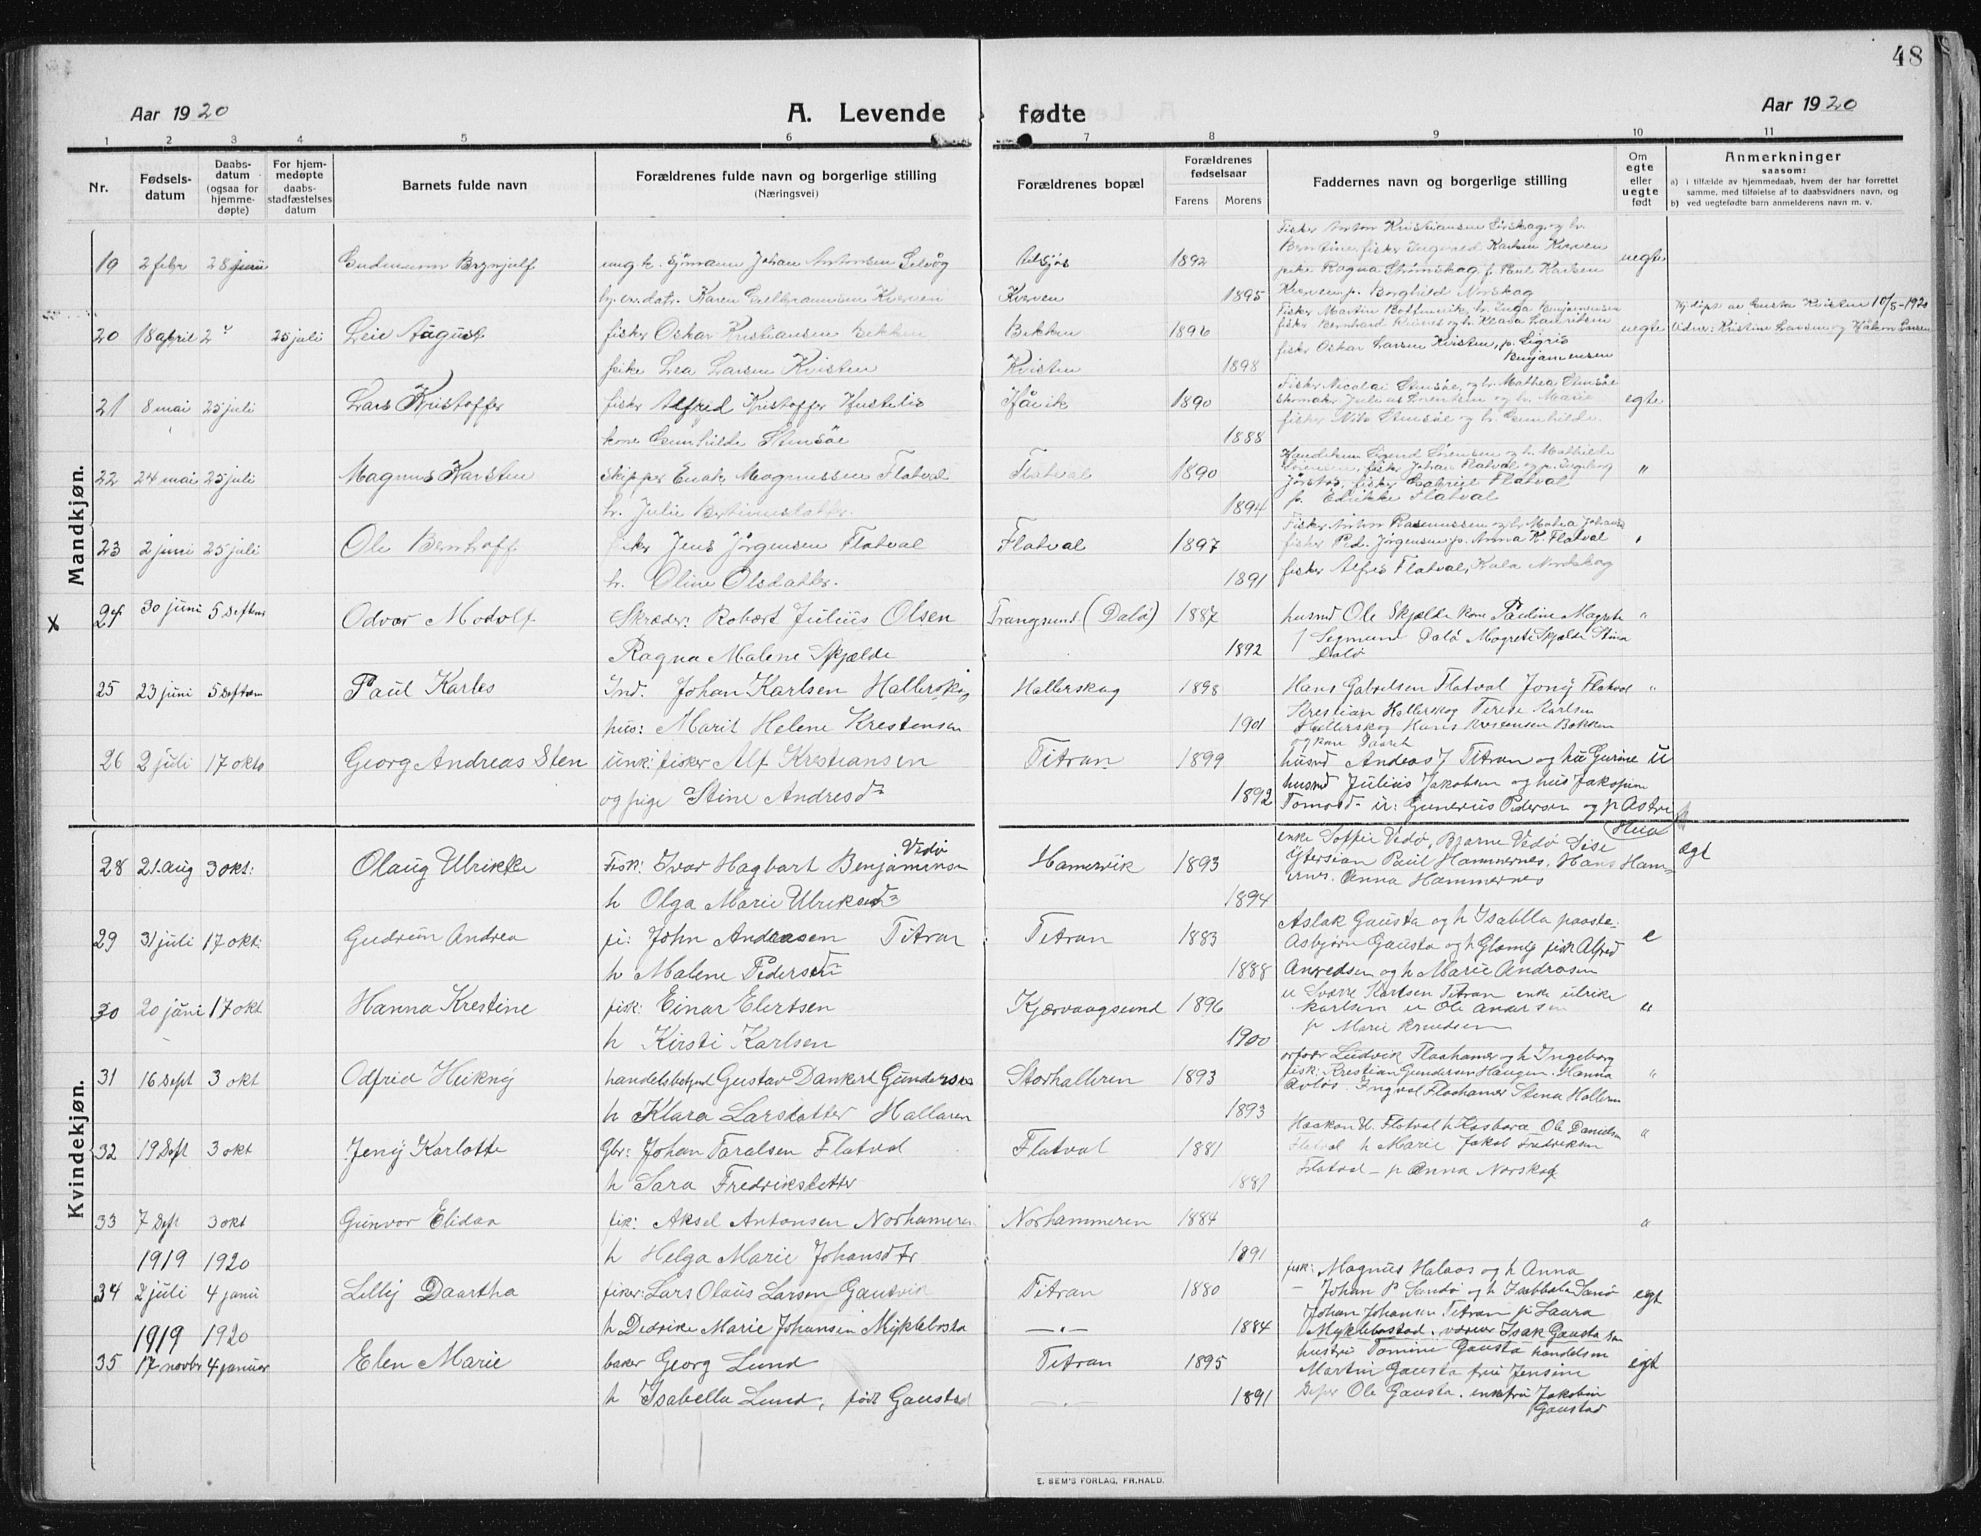 48
Aar 1920 A. Levende fødte Aar 1920
1 2 3 4 5 6 7 8 9 10 11
Nr. Fødselsdatum Daabsdatum (ogsaa for hjemmedøpte) For hjemmedøpte daabsstadfæstelses datum Barnets fulde navn Forældrenes fulde navn og borgerlige stilling (Næringsvei) Forældrenes bopæl Forældrenes fødselsaar Farens Morens Faddernes navn og borgerlige stilling Om egte eller uegte født Anmerkninger saasom:
a) i tilfælde av hjemmedaab, hvem der har forrettet samme, med tilføielse af to daabsvidners navn, og
b) ved uegtefødte barn anmelderens navn m. v.
Mandkjøn.
19 2 febr 28 juni Gudmunn Brynjulf ung k. Sjømann Johan Antonsen Selvåg 1892 uegte
Fisker Anton Kristiansen Sørskag og h.
Berntine fisker Ingvald Karlsen Kverven
pike Ragna Strømskag f. Paul Karlsen
Karen Kverven Kverven 1895 Kverven p. Borghild Norskag
20 18 april 2 " 25 juli Leif August fisker Oskar Kristiansen Bekken Bekken 1896 uegte
Hj.døpt av Gusta Kvisten 10/5-1920
Vidner: Kristine Larsen og Håkon Larsen
fisker Oskar Larsen Kvisten, p. Sigrid
Benjaminsen
pike Lea Larsen Kvisten Kvisten 1898
21 8 mai 25 juli Lars Kristoffer fisker Alfred Kristoffer Håvik 1890 egte
Fisker Nicolai Stensøe, og h. Mathea Stensøe
skomaker Julius Lorentsen og h. Marie
fisker Nils Stensøe og h. Gunhilde
kone Gunhilde Stensøe 1888
22 24 mai 25 juli Magnus Karsten Skipper Enok Magnussen Flatval Flatval 1890 "
fisker Johan Flatval og p. Ingeborg
fisker Gabriel Flatval
p. Edrikke Flatval
h. Julie 1894
23 2 juni 25 juli Ole Bernhoff fisker Jens Jørgensen Flatval Flatval 1897 "
Fisker Anton Rasmussen og h. Matea
fisker Ped. Jørgensen p. Anna K. Flatval
fisker Alfred Flatval, Kala Nordskag
h. Oline Olsdatter. 1891
x 24 30 juni 5 septem Odvar Modolf Skræder: Robert Julius Olsen Trangsund (Dalø) 1887 husmd Ole Skjælde kone Pauline Magrete "
Ragna Malene Skjælde 1892 Segmund Dalø Magrete Skjælde Stina
Dalø
25 23 juni 5 septem Paul Karles Ind. Johan Karlsen Hallerskag Hallerskag 1898 Hans Gabrelsen Flatval Jony Flatval "
Krestian Hallerskog Terese Karlsen
hus: Marit Helene Krestensen 1901 Hallerskog Hans Krestensen Bekken
og kone
26 2 juli 17 okto Georg Andreas Sten unk: fisker Alf Krestiansen Titran 1899 husmd Andeas J Titran og hu Gurine u
og pige Stine Andresdtr 1892 husmd Julius Jakobsen og hus
u: Gunerius Pedersen og p Astri
Kvindekjøn.
28 21. aug 3 okt: Olaug Ulrikke Fisk: Ivar Hagbart Benjaminsen Vedø Hamervik 1893 egt
enke Soffie Vedø, Bjarne Vedø
Paul Hammernes, Hans Ham-
ernes. Anna Hammernes
h Olga Marie Ulriksdtr 1894
29 31 juli 17 okt: Gudrun Andrea fi: John Andreasen Titran Titran 1883 e
Aslak Gausta og h Isabella
Asbjørn Gausta og h fisk Alfred
h Malene Pedersdtr 1888 og h Marie Andrasen
30 20 juni 17 okt Hanna Krestine fisk: Einar Elertsen Kjervaagsund 1896 "
u Sværre Karlsen Titran enke ulrike
Karlsen u Ole Andersen
p Marie Knudsen
h Kirsti Karlsen 1900
31 16 sept 3 okt Odfrid Heikny handelsbetjent Gustav Dankert Gundersen Storhalleren 1893 "
Ludvik Flaahamer og h Ingeborg
fisk: Krestian Gundersen Haugen. Hanna
Ingval Flaahamer Stena Halleren
h Klara Larsdatter Hallaren 1893
32 19 sept 3 okt Jeny Karlotte Gbr: Johan Taralsen Flatval Flatval 1881 "
Haakon H. Flatval h Ole Danielsen
Flatval h Marie Jakob Fredriksen
Flatval – p Anna Norskag
h Sara Fredriksdatter 1881
33 7 sept 3 okt Gunvor Elidaa fisk: Aksel Antonsen Norhameren Norhammeren 1884 "
h Helga Marie Johansdtr 1891
1919 1920
34 2 juli 4 janu Lilly Daartha fisker Lars Olaus Larsen Gautvik Titran 1880 egt
fisk: Magnus Halaas og h Anna
– Johan P Sandø og h Sanø
Johan Johansen Titran p Laura
h Dedrike Marie Johansen Myklebosta —„— 1884 Myklebostad. Isak Gausta
1919 1920
35 17 novbr 4 januar Elen Marie baker Georg Lund Titran 1895 egt
hustru Tomine Gausta handelsm
Martin Gausta fru Jensine
Ole Gausta. enkefru Jakobine
Gaustad
h Isabella Lund, født Gaustad —„— 1891
E. SEM'S FORLAG, FR.HALD.